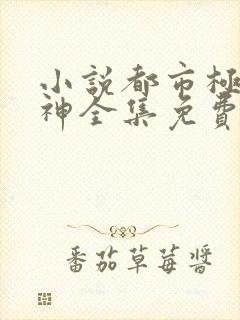 小説都市極
神全集免費
番茄草莓醬